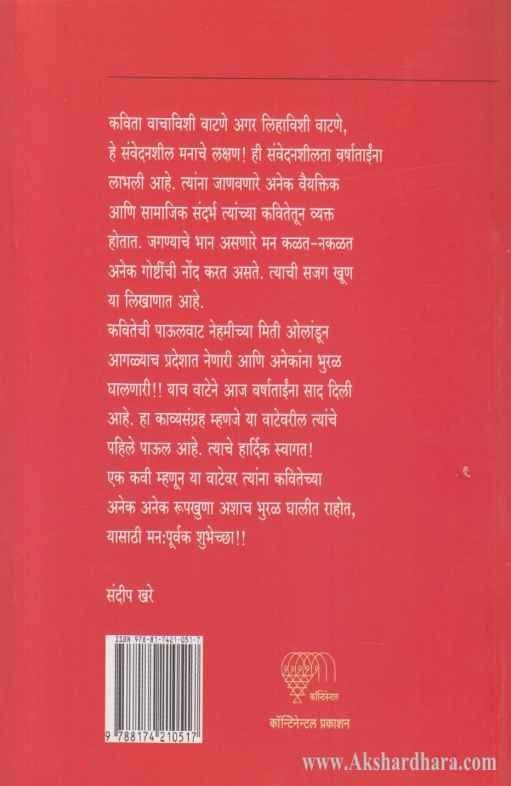 कविता वाचाविशी वाटणे अगर लिहाविशी वाटणे,
हे संवेदनशील मनाचे लक्षण! ही संवेदनशीलता वर्षाताईंना
लाभली आहे. त्यांना जाणवणारे अनेक वैयक्तिक
आणि सामाजिक संदर्भ त्यांच्या कवितेतून व्यक्त
होतात. जगण्याचे भान असणारे मन कळत-नकळत
अनेक गोष्टींची नोंद करत असते. त्याची सजग खूण
या लिखाणात आहे.
कवितेची पाऊलवाट नेहमीच्या मिती ओलांडून
आगळ्याच प्रदेशात नेणारी आणि अनेकांना भुरळ
घालणारी!! याच वाटेने आज वर्षाताईंना साद दिली
आहे. हा काव्यसंग्रह म्हणजे या वाटेवरील त्यांचे
पहिले पाऊल आहे. त्याचे हार्दिक स्वागत!
एक कवी म्हणून या वाटेवर त्यांना कवितेच्या
अनेक अनेक रूपखुणा अशाच भुरळ घालीत राहोत,
यासाठी मन:पूर्वक शुभेच्छा!!
संदीप खरे
ISBN 978-81-7421-051-7
9 788174 210517
कॉन्टिनेन्टल
कॉन्टिनेन्टल प्रकाशन
www.Akshardhara.com